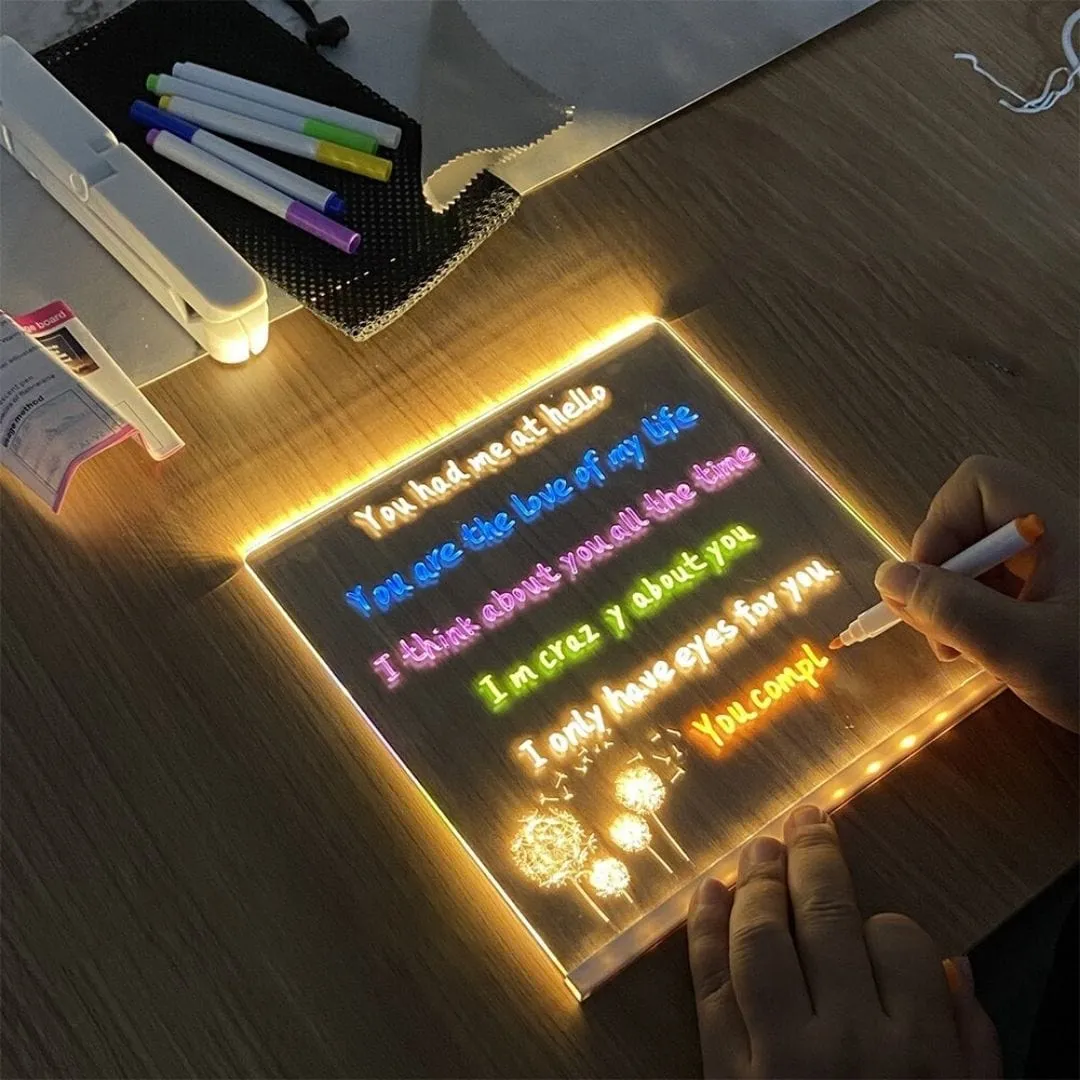 You had me at hello
You are the love of my life
I think about you all the time
I m craz y about you
I only have eyes for you
You compl
board